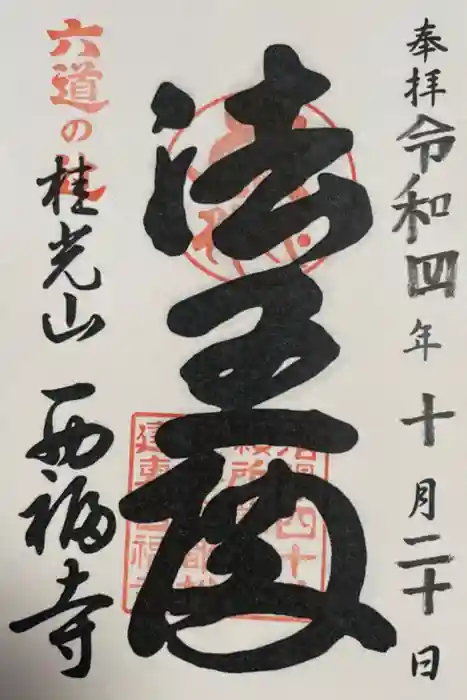 奉拝 令和四年 十月二十日
法王
六道の辻
桂光山 西福寺